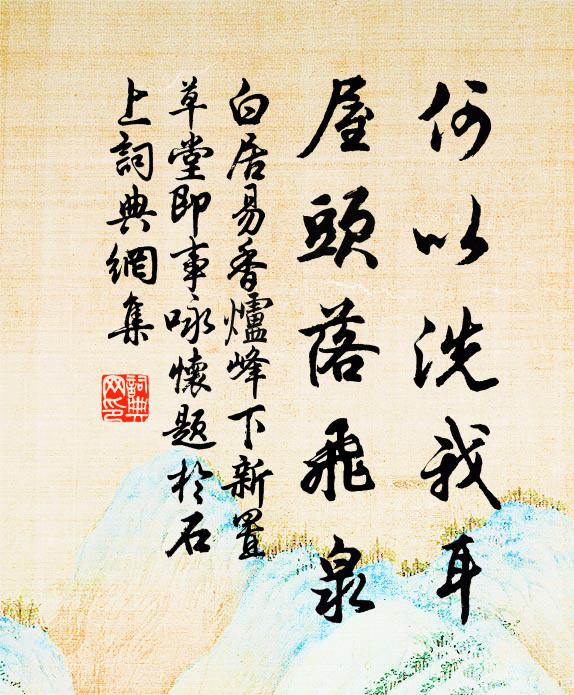 何以洗我耳
屋頭落飛泉
白居易香爐峰下新置
草堂即事咏懷題於石
上詞典網集
詞典
网印